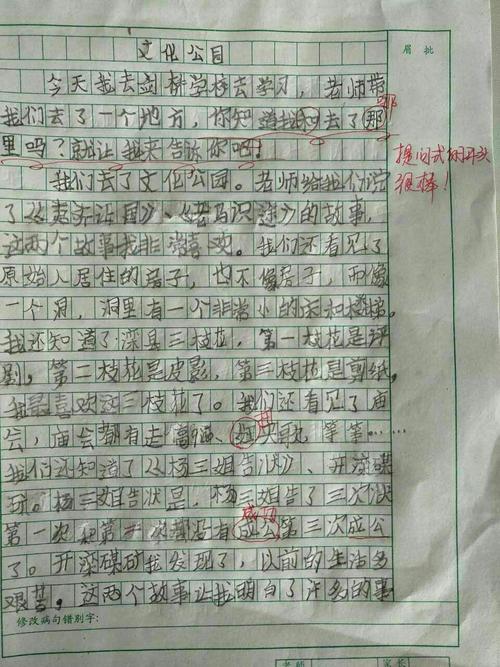 文化公园
眉批
今天我去剑桥学校去学习，老师带
我们去了一个地方，你知道我们去了那
那
里吗？就让我来告诉你吧！
提问式的开头
很棒！
我们去了文化公园。老师给我们说
了《夷齐让国》、《老马识途》的故事，
这两个故事我非常喜欢。我们还看见了
原始人居住的房子，也不像房子，而像
一个洞，洞里有一个非常小的床和楼梯。
我还知道了滦县三枝花，第一枝花是评
剧，第二枝花是皮影，第三枝花是剪纸，
我最喜欢这三枝花了。我们还看见了庙
会，庙会都有走高跷、秧歌 等等……
我们还知道了《杨三姐告状》、开滦碟
矿。杨三姐告状是，杨三姐告了三次状
第一次和第二次都没有成公第三次成公
成功
了。开滦碟矿我发现了，以前的生活多
艰苦，这两个故事让我明白了许多的事
修改病句错别字：
老师
家长